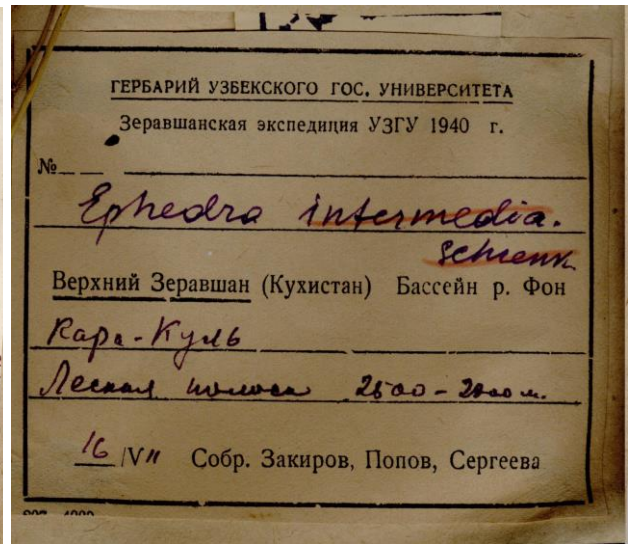 ГЕРБАРИЙ УЗБЕКСКОГО ГОС. УНИВЕРСИТЕТА
Зеравшанская экспедиция УЗГУ 1940 г.
№
Ephedra intermedia.
Schrenk
Верхний Зеравшан (Кухистан) Бассейн р. Фон
Кара-Куль
Лесная полоса 2500 - м.
16/VII Собр. Закиров, Попов, Сергеева